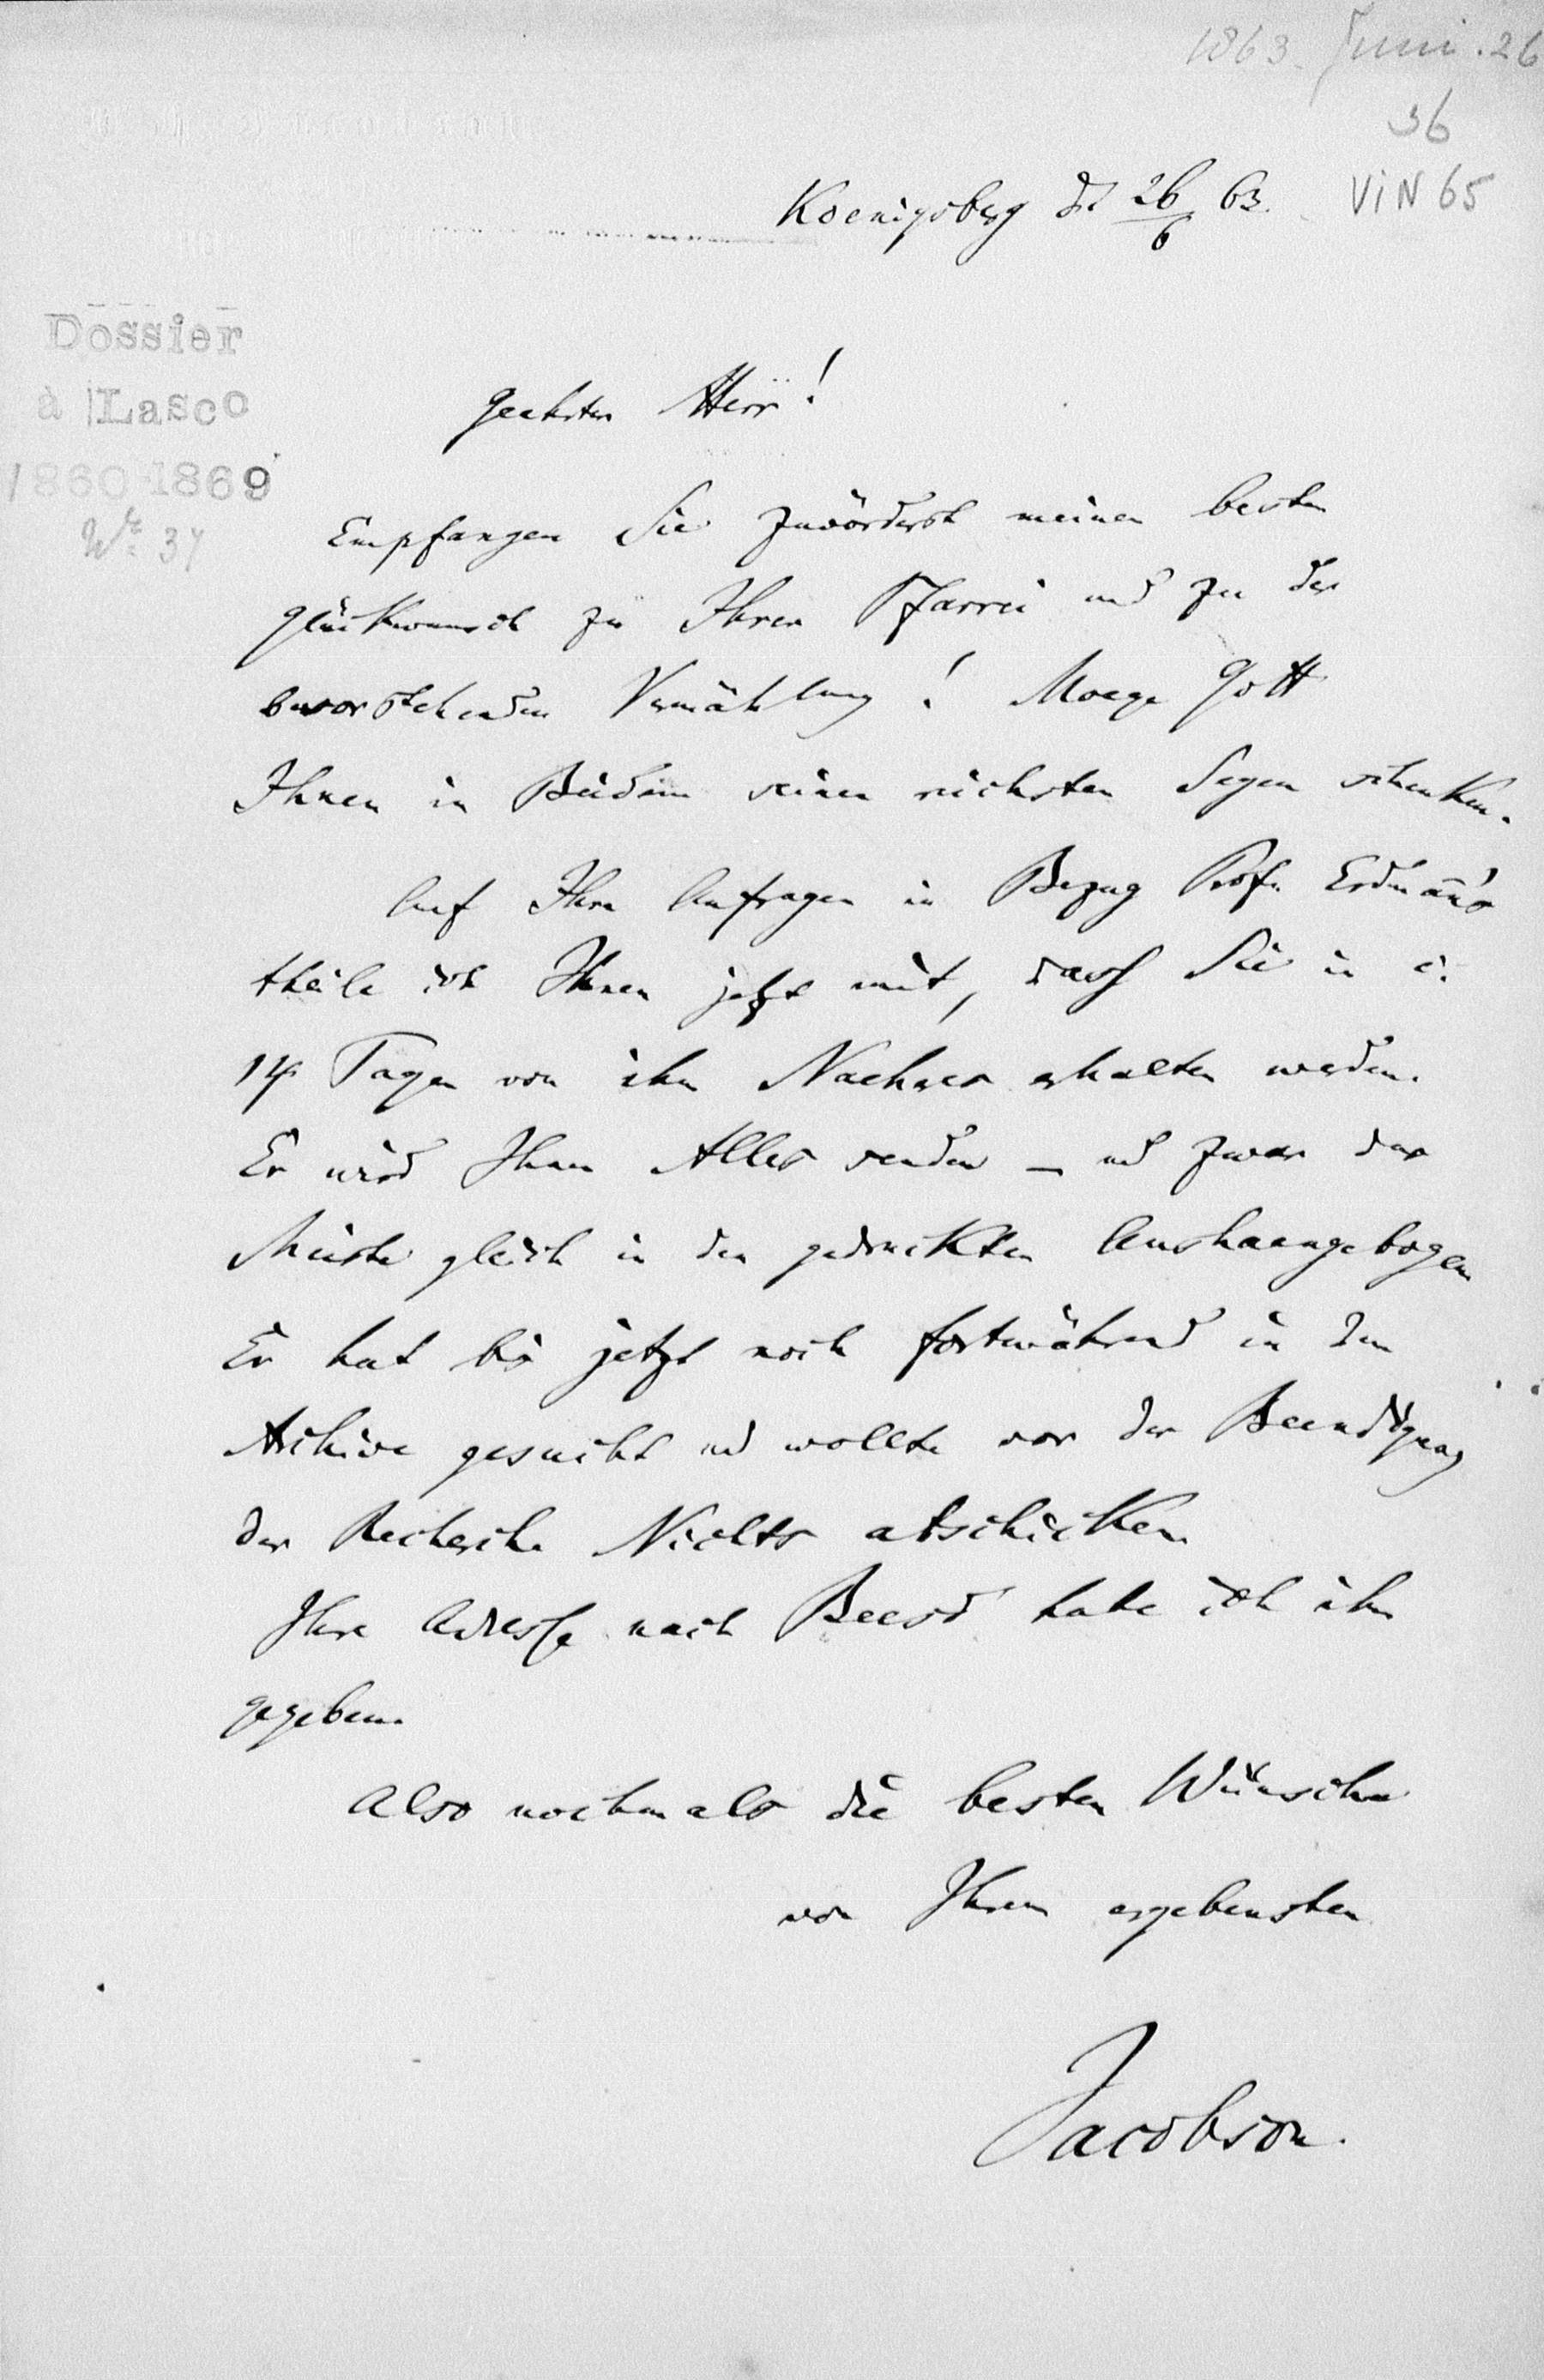 1863. Juni. 26
36
ViN 65
Koenigsberg d. 26/6 63.
Dossier
à Lasco
1860-1869
No. 37
Geehrter Herr!
Empfangen Sie zuvörderst meinen besten
Glückwunsch zu Ihrer Pfarrei und zu der
bevorstehenden Vermählung! Moege Gott
Ihnen in Beidem seinen reichsten Segen schenken.
Auf Ihre Anfragen in Bezug Prof. Erdmann's
theile ich Ihnen jetzt mit, dass Sie in c.
14 Tagen von ihm Naeheres erhalten werden.
Er wird Ihnen Alles senden – und zwar das
Meiste gleich in den gedruckten Aushaengebogen
Er hat bis jetzt noch fortwährend in dem
Archive gesucht und wollte vor der Beendigung
der Recherche Nichts abschicken
Ihre Adresse nach Beesd habe ich ihm
gegeben.
Also nochmals die besten Wünsche
von Ihrem ergebensten
Jacobson.